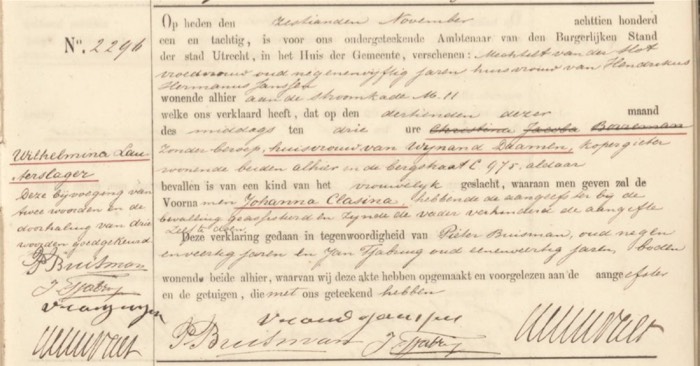 No. 2296
Op heden den zestienden November achttien honderd
een en tachtig, is voor ons ondergeteekende Ambtenaar van den Burgerlijken Stand
der stad Utrecht, in het Huis der Gemeente, verschenen: Mechtelt van der Slot
vroedvrouw oud negenenvyftig jaren huisvrouw van Hendrikus
Hermanus Janssen
wonende alhier aan de stroomkade M. 11
welke ons verklaard heeft, dat op den dertienden dezer maand
des middags ten drie ure Christina Jacoba Boverman
zonder beroep, huisvrouw van Wynand Daamen, kopergieter
wonende beiden alhier in de bergstraat C 975. aldaar
bevallen is van een kind van het vrouwelyk geslacht, waaraan men geven zal de
Voornamen Johanna Clasina, hebbende de aangeefster bij de
bevalling geassisteerd en zynde de vader verhinderd de aangifte
zelf te doen.
Deze verklaring gedaan in tegenwoordigheid van Pieter Buisman, oud negen
enveertig jaren en Jan Tjabring oud eenenveertig jaren, boden
wonende beide alhier, waarvan wij deze akte hebben opgemaakt en voorgelezen aan de aangeefster
en de getuigen, die met ons geteekend hebben
Wilhelmina
Aerslager
Deze bijvoeging van
twee woorden en de
doorhaling van drie
woorden goedgekeurd
P. Buisman
P. Buisman